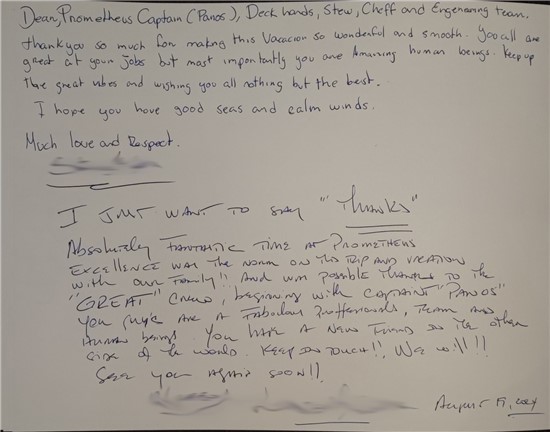 Dear, Prometheus Captain (Panos), Deck hands, Stew, Cheff and Engenering team.
thank you so much for making this Vacacion so wonderful and smooth. You all are
great at your jobs but most importantly you are Amaizing human beings. Keep up
the great vibes and wishing you all nothing but the best.
I hope you have good seas and calm winds.
Much love and Respect.
I JUST WANT TO SAY "THANKS"
Absolutely FANTASTIC TIME AT PROMETHEUS
EXCELLENCE WAS THE NORM ON THIS TRIP AND VACATION
WITH OUR FAMILY!! AND WAS POSSIBLE THANKS TO THE
"GREAT" CREW, beginning with CAPTAIN "PANOS"
You guys ARE A FABULOUS PROFFESIONALS, TEAM AND
HUMAN beings. YOU HAVE A NEW FRIEND IN THE OTHER
SIDE OF THE WORLD. KEEP IN TOUCH!!, WE WILL!!
SEE YOU AGAIN SOON!!
August 2024